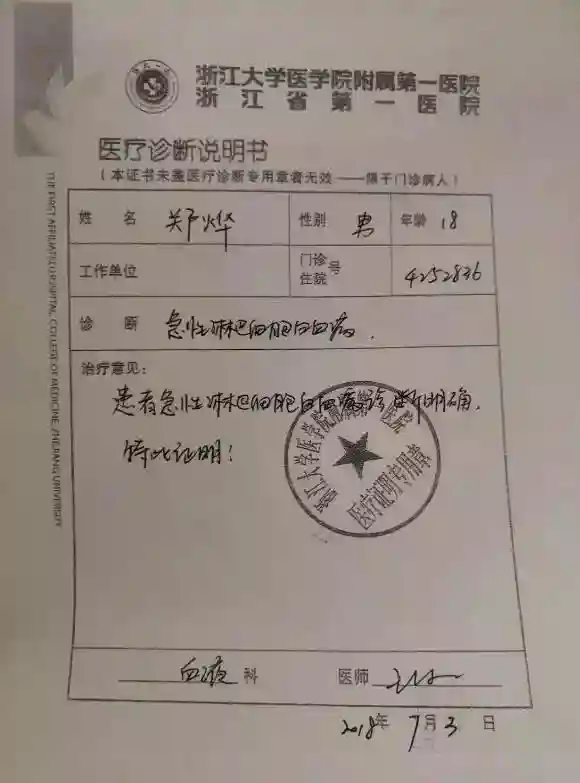 浙江大学医学院附属第一医院
浙江省第一医院
医疗诊断说明书
(本证书未盖医疗诊断专用章者无效——限于门诊病人)
姓 名 郑烨 性别 男 年龄 18
工作单位 门诊 住院 号 4252836
诊 断 急性淋巴细胞白血病.
治疗意见:
患者急性淋巴细胞白血病诊断明确.
特此证明!
浙江大学医学院附属第一医院
医疗证明专用章
血液 科 医师
2018年 7月 3 日
THE FIRST AFFILIATED HOSPITAL, COLLEGE OF MEDICINE, ZHEJIANG UNIVERSITY